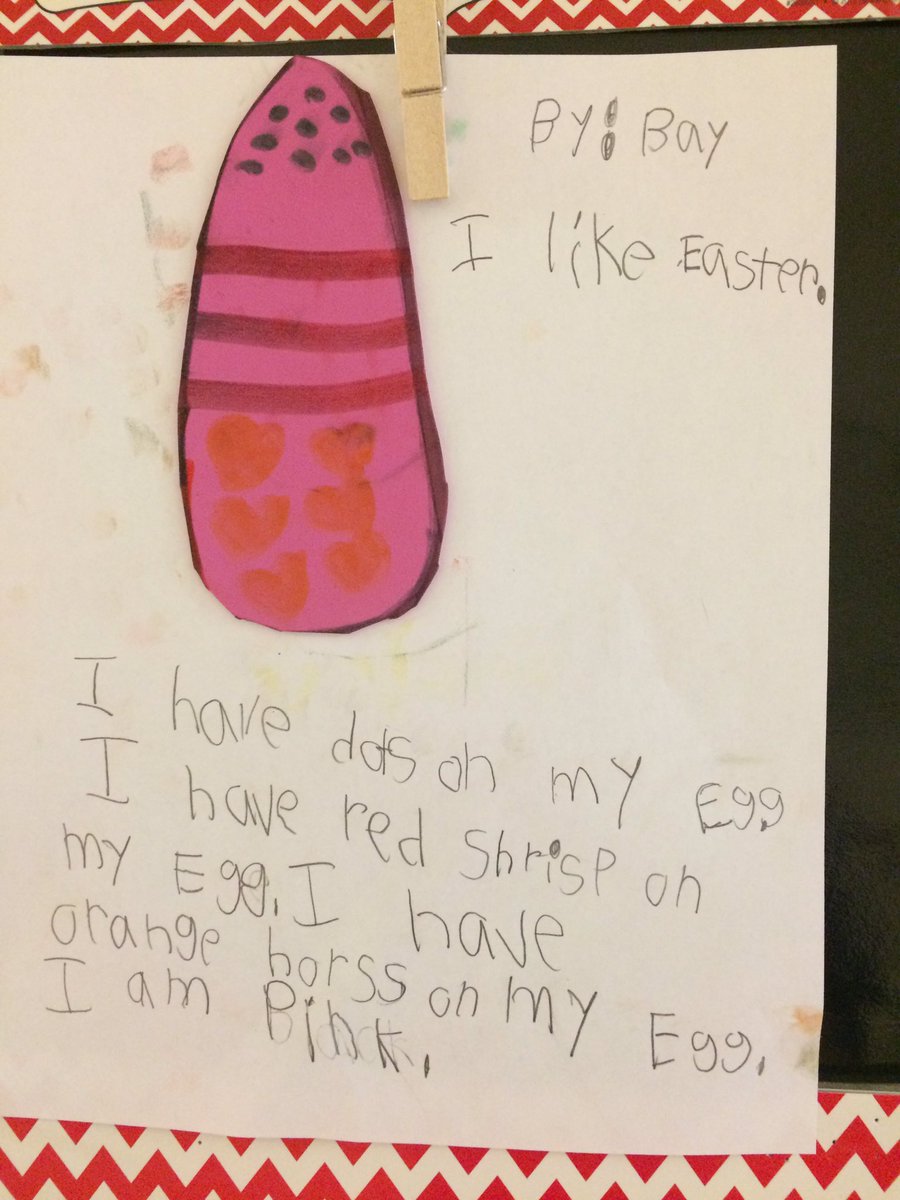 By: Bay
I like Easter.
I have dots on my Egg
I have red Shrisp on
my Egg. I have
orange horss on my Egg.
I am Pink.